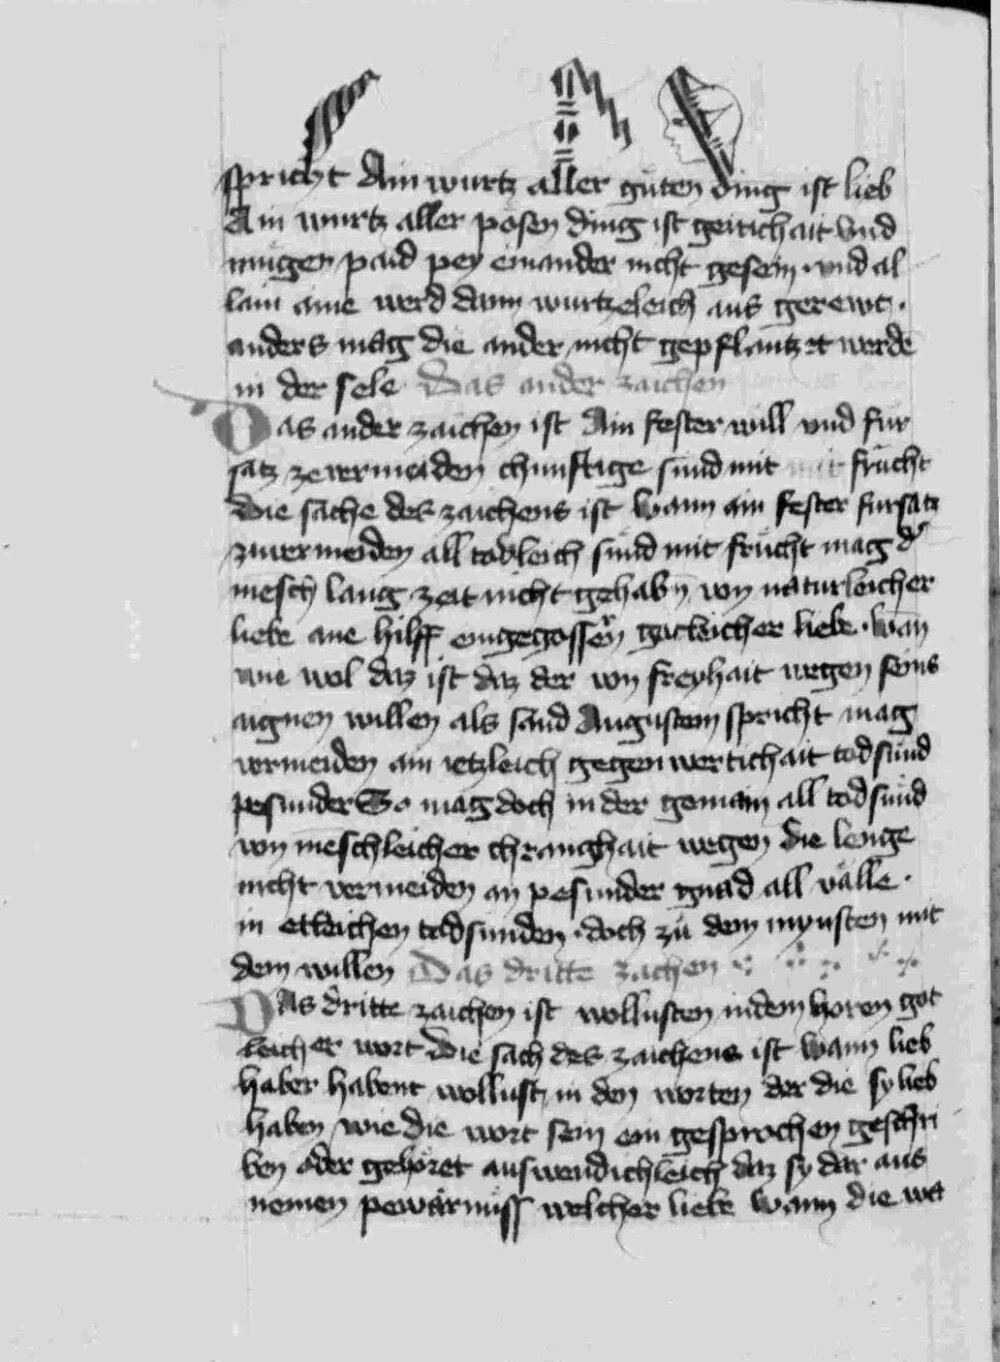 spricht Ain wurtz aller guten ding ist lieb
Ain wurtz aller posen ding ist geitichait vnd
mugen paid pey einander nicht gesein · vnd al
lain aine werd dann wurtzeleich aus gerewt ·
anders mag die ander nicht gepflantzet werdē
in der sele Das ander zaichen
Das ander zaichen ist Ain fester will vnd fur
satz ze vermeiden chunftige sund mit frucht
Die sache des zaichens ist Wann ain fester fursatz
zuuermeiden all todleich sünd mit frücht mag d'
mēsch lang zeit nicht gehabn̄ von naturleicher
liebe ane hilff eingegossen gotleicher liebe · wan̄
wie wol daz ist daz der von freyhait wegen seins
aignen willen als sand Augustein spricht mag
vermeiden ain ietzleich gegenwertichait todsünd
pesunder So mag doch in der gemain all todsünd
von mēschleicher chrangkhait wegen die lenge
nicht vermeiden an pesunder gnad all välle ·
in etleichen todsunden · doch zů dem mynsten mit
dem willen Das dritte zachen
DAs dritte zaichen ist wollusten in dem horen got
leicher wort Die sach des zaichens ist Wann lieb
haber habent wollust in den worten der die sy lieb
haben wie die wort sein ein gesprochen geschri
ben oder gehöret auswendichleich daz sy dar aus
nemen pewärnüss welcher liebe Wann die wa